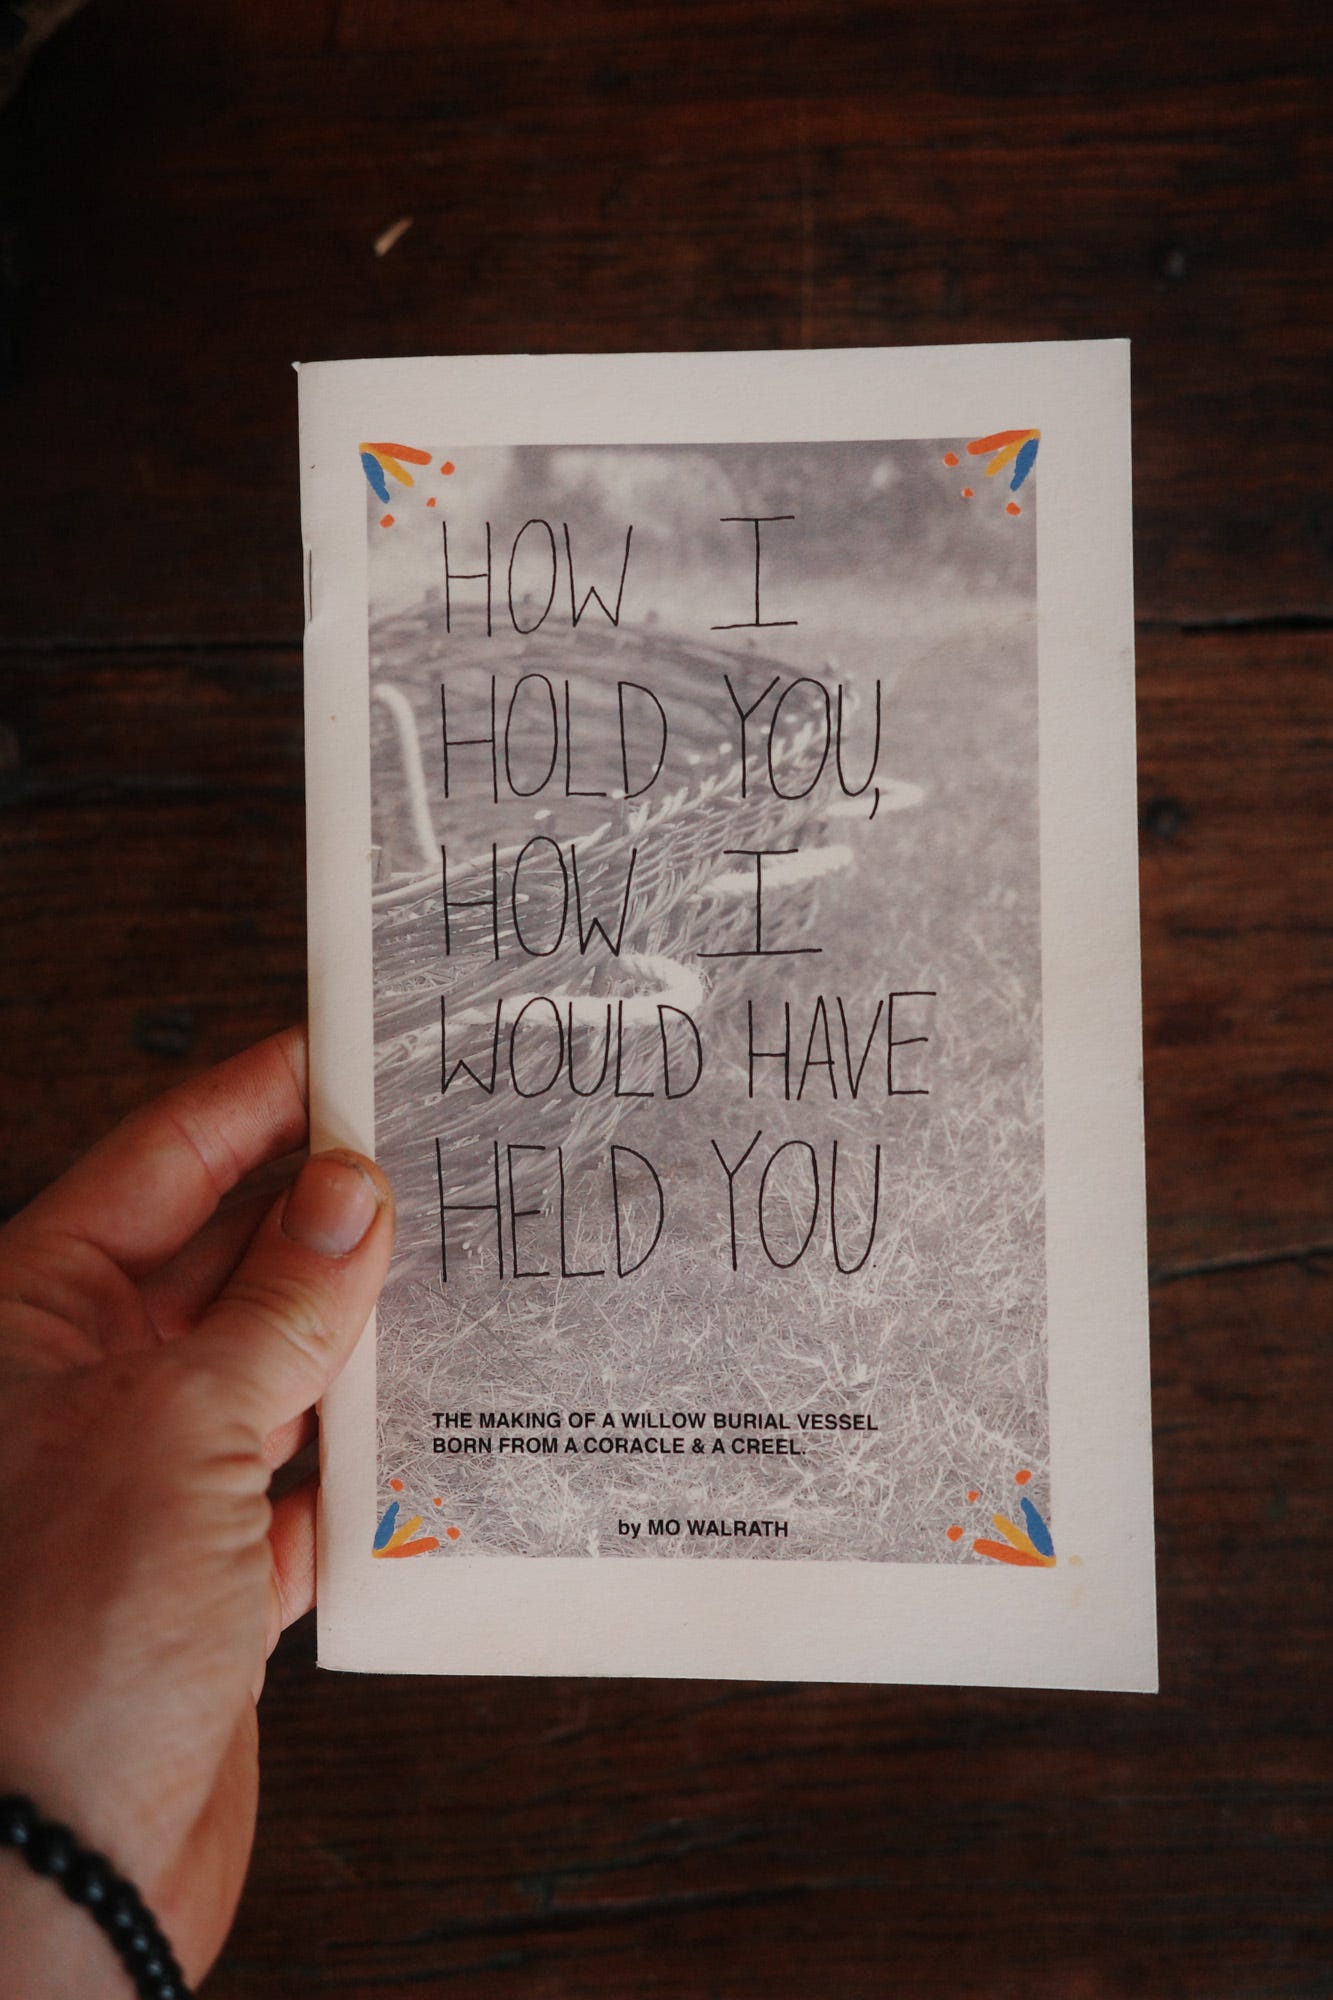 HOW I
HOLD YOU,
HOW I
WOULD HAVE
HELD YOU.
THE MAKING OF A WILLOW BURIAL VESSEL
BORN FROM A CORACLE & A CREEL.
by MO WALRATH